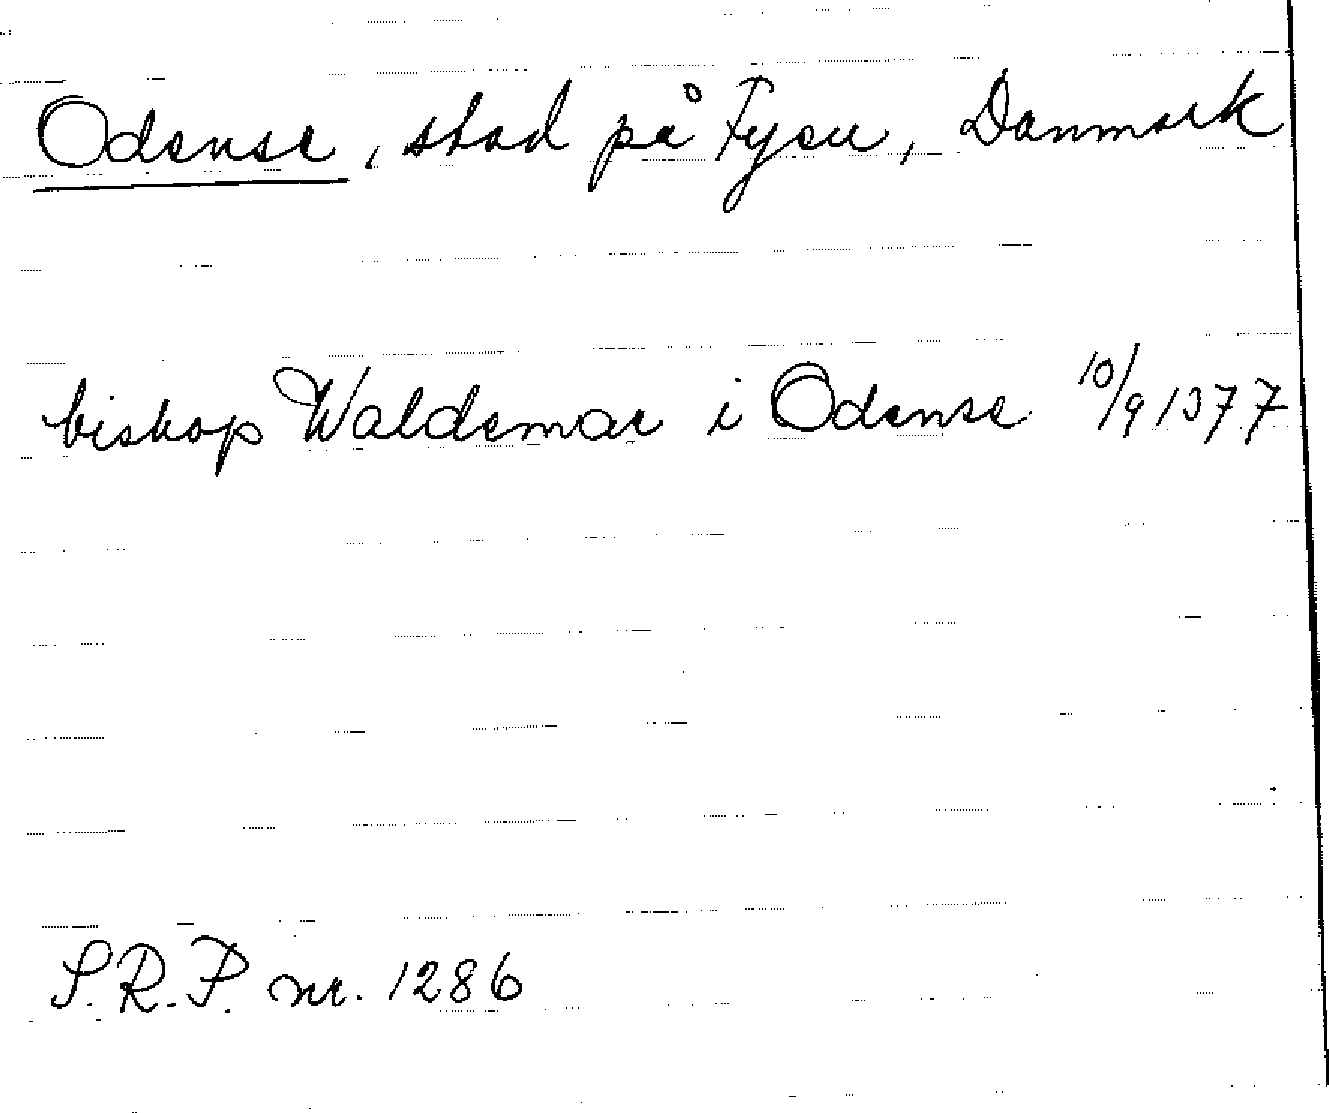 Odense, stad på Fyen, Danmark
biskop Waldemar i Odense 10/9 1377
S.R.P. nr. 1286